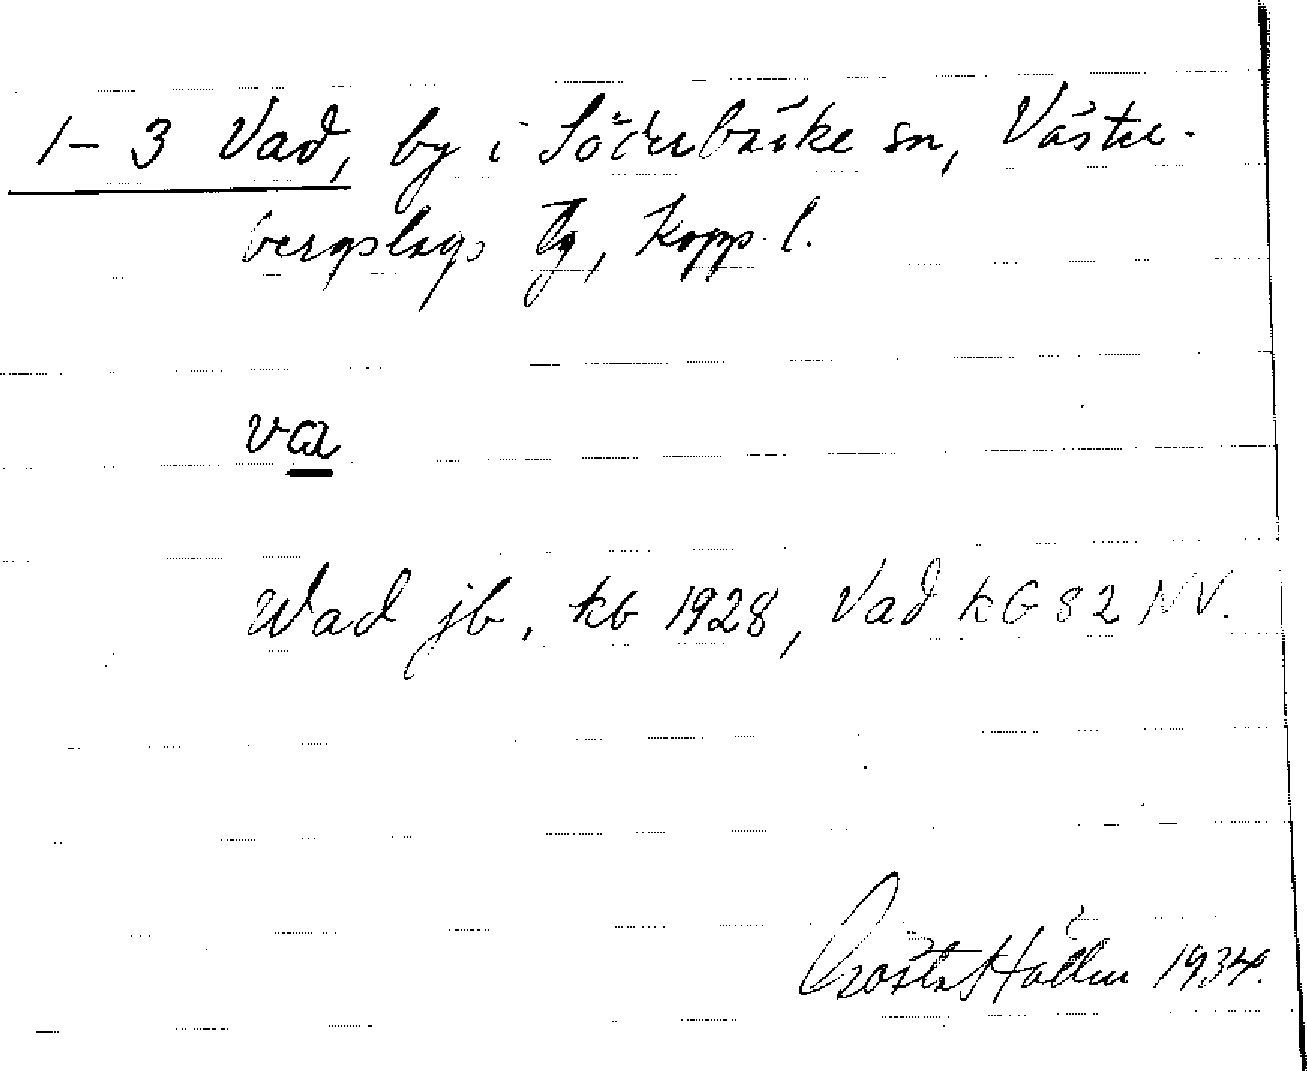 1-3 Vad, by i Söderbärke sn, Väster-
bergslags tg, Kopp. l.
va
Wad jb, kb 1928, Vad kG 82 NV.
Gösta Hallin 1934.